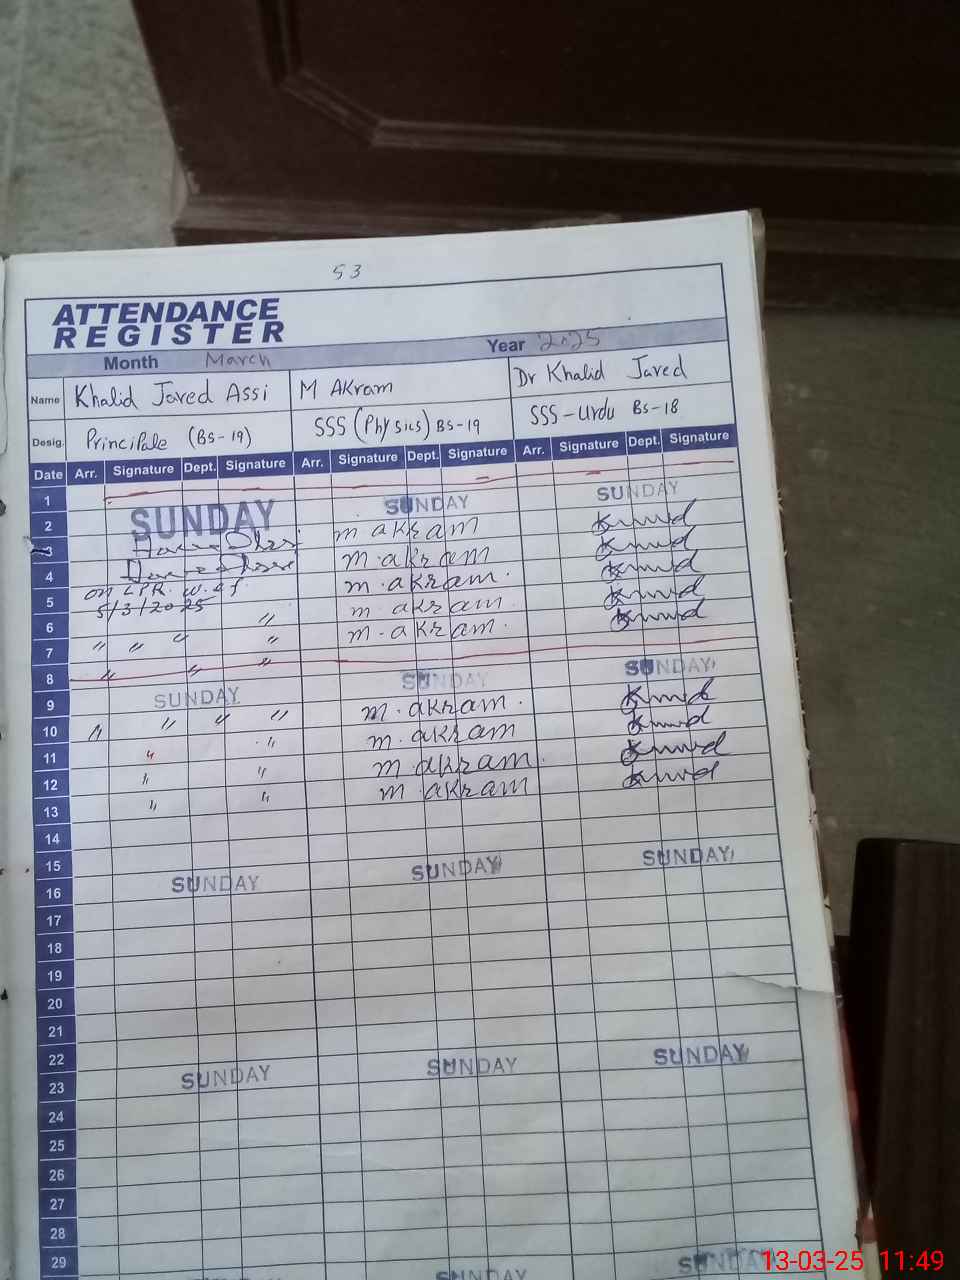 53
ATTENDANCE
REGISTER
Month March Year 2025
Name Khalid Javed Assi M AKram Dr Khalid Javed
Desig. Principale (BS-19) SSS (Physics) BS-19 SSS-Urdu BS-18
Date Arr. Signature Dept. Signature Arr. Signature Dept. Signature Arr. Signature Dept. Signature
1
2 SUNDAY SUNDAY SUNDAY
3 m akram
4 m.akram
5 on LPR w.e.f. 5/3/2025 m.akram.
6 〃 m.akram
7 〃 〃 〃 〃 m.akram.
8 〃 〃 〃
9 SUNDAY SUNDAY SUNDAY
10 〃 〃 〃 〃 m.akram.
11 〃 〃 m.akram
12 〃 〃 m.akram.
13 〃 〃 m.akram
14
15
16 SUNDAY SUNDAY SUNDAY
17
18
19
20
21
22
23 SUNDAY SUNDAY SUNDAY
24
25
26
27
28
29
SUNDAY SUNDAY SUNDAY
13-03-25 11:49